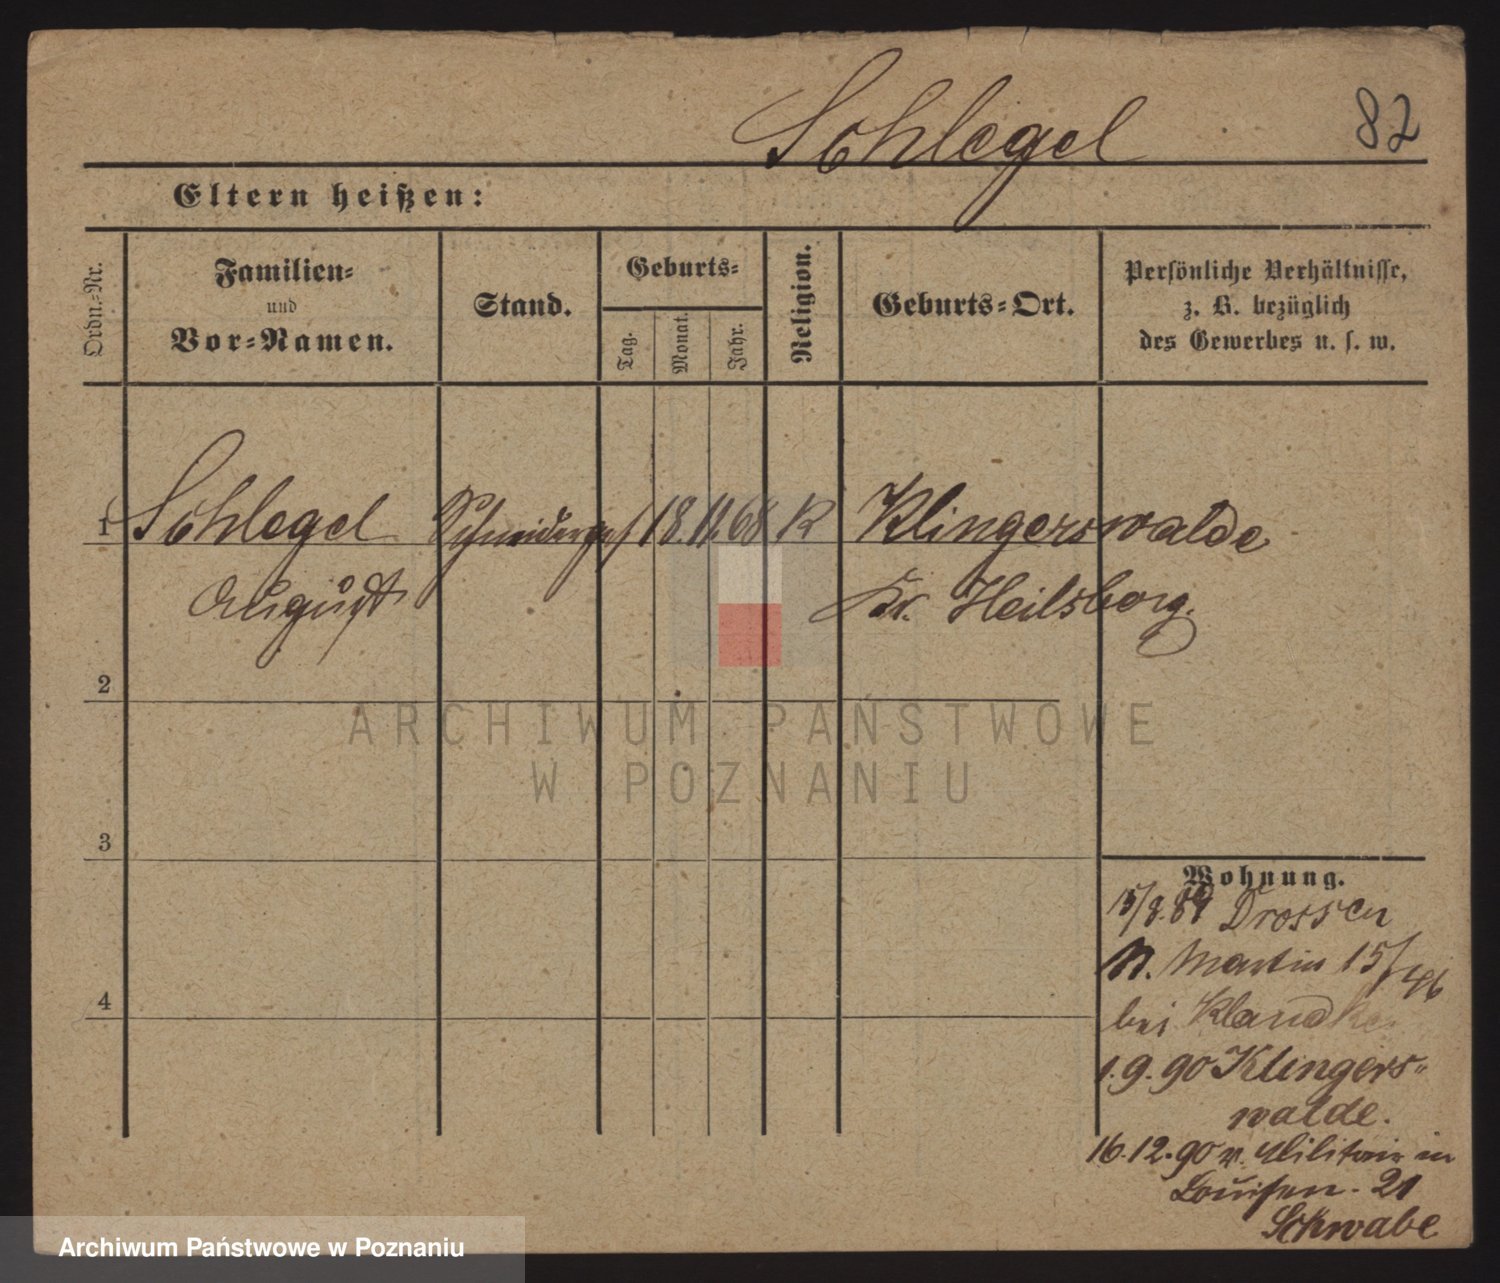 Schlegel
82
Eltern heißen:
Ordn.-Nr.
Familien-
und
Vor-Namen.
Stand.
Geburts-
Tag.
Monat.
Jahr.
Religion.
Geburts-Ort.
Persönliche Verhältnisse,
z. B. bezüglich
des Gewerbes u. s. w.
1 Schlegel Schneiderges 18. 11. 68 K Klingerswalde
August Kr. Heilsberg.
2
3
4
Wohnung.
15/8. 89 Drossen
St. Martin 15/46
bei
1. 9. 90 Klingers-
walde.
16. 12. 90 v. Militair in
Louisen. 21
Schwabe
ARCHIWUM PAŃSTWOWE
W POZNANIU
Archiwum Państwowe w Poznaniu